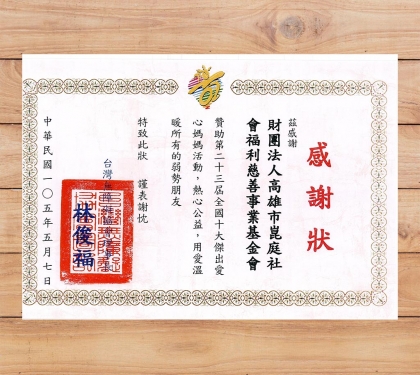 感謝狀
茲感謝
財團法人高雄市崑庭社
會福利慈善事業基金會
贊助第二十三屆全國十大傑出愛
心媽媽活動，熱心公益，用愛溫
暖所有的弱勢朋友
特致此狀　謹表謝忱
林俊福
中華民國一〇五年五月七日